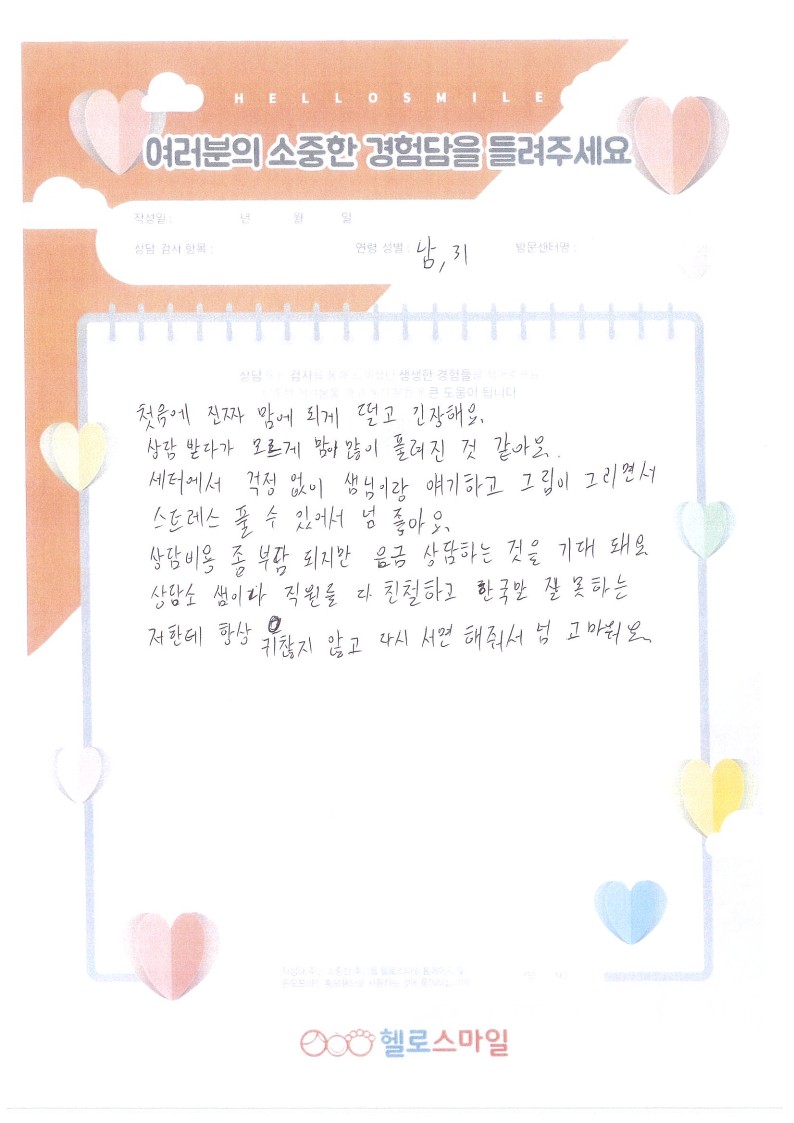 HELLOSMILE
여러분의 소중한 경험담을 들려주세요
작성일 : 년 월 일
상담 검사 항목 : 연령 성별 : 남, 31 방문센터명 :
상담 검사 생생한 경험들
큰 도움이 됩니다
첫음에 진짜 맘에 되게 떨고 긴장해요.
상담 받다가 모르게 맘이 많이 풀려진 것 같아요.
세터에서 걱정 없이 샘님이랑 얘기하고 그림이 그리면서
스트레스 풀 수 있어서 넘 좋아요.
상담비용 좀 부담 되지만 음금 상담하는 것을 기대 돼요
상담소 쌤이다 직원를 다 친철하고 한국말 잘 못하는
저한테 항상 귀찮지 않고 다시 서면 해줘서 넘 고마워요.
헬로스마일